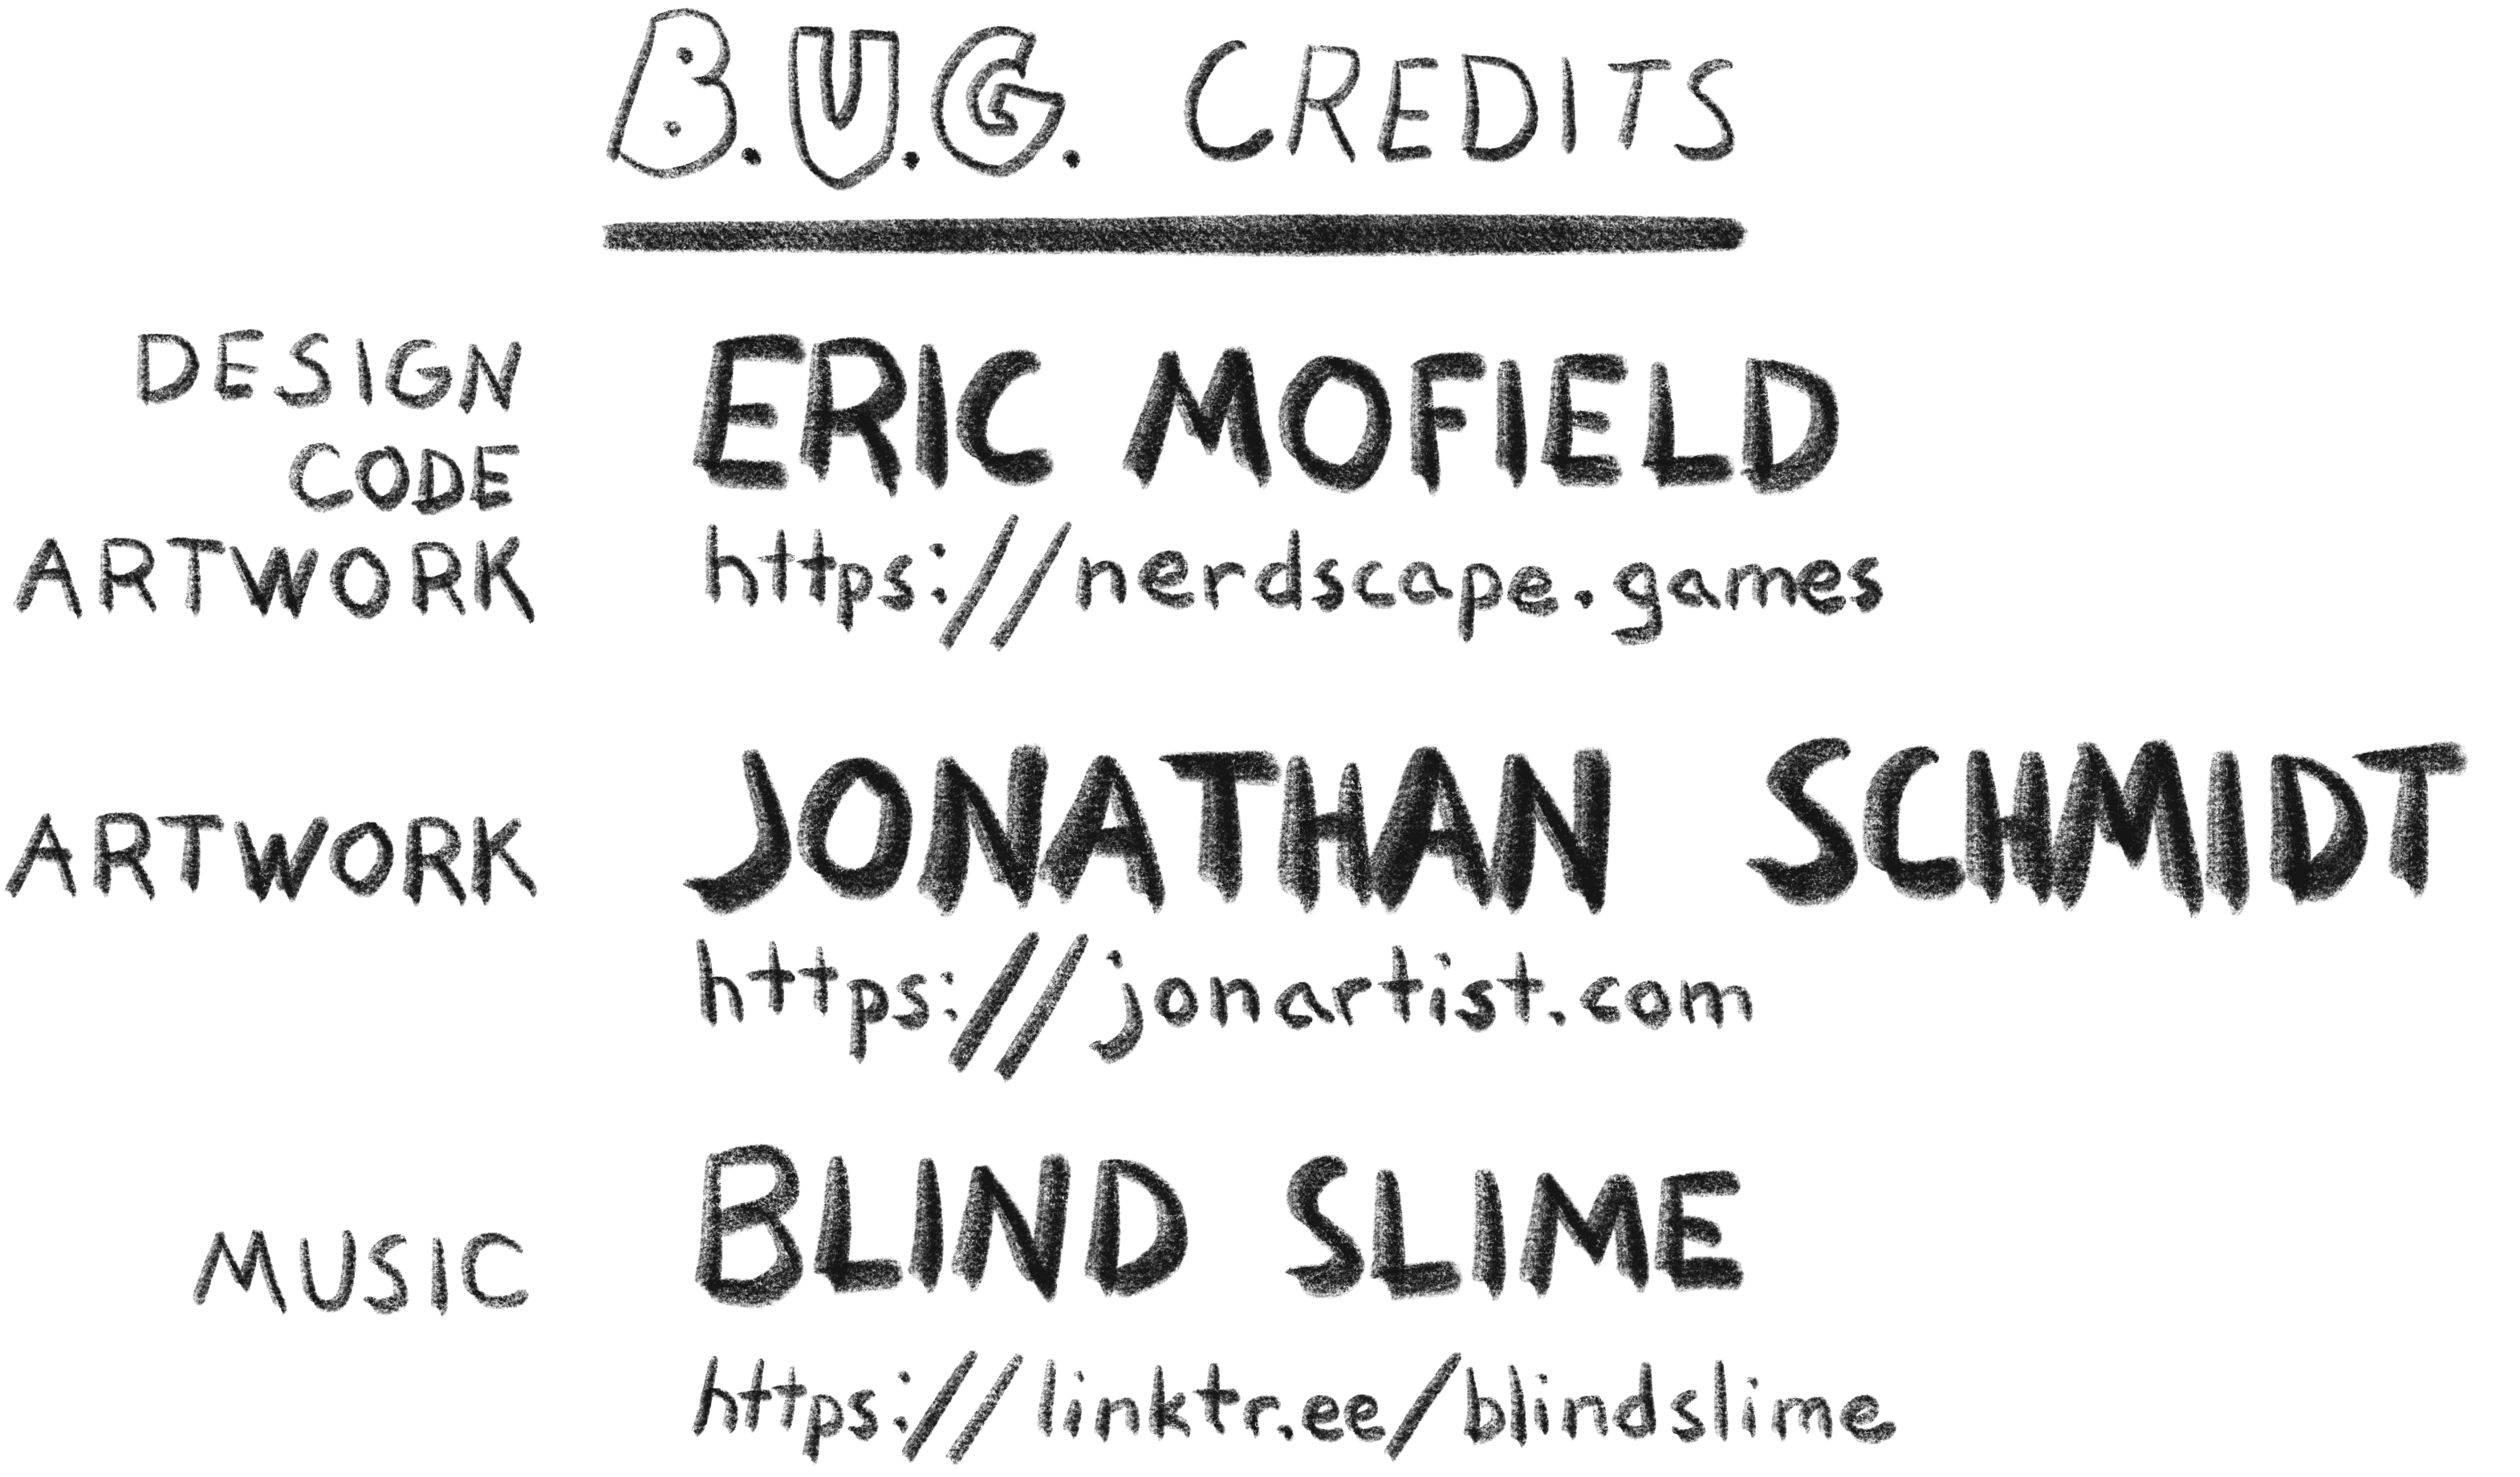 B.U.G. CREDITS
DESIGN
CODE
ARTWORK
ERIC MOFIELD
https://nerdscape.games
ARTWORK
JONATHAN SCHMIDT
https://jonartist.com
MUSIC
BLIND SLIME
https://linktr.ee/blindslime